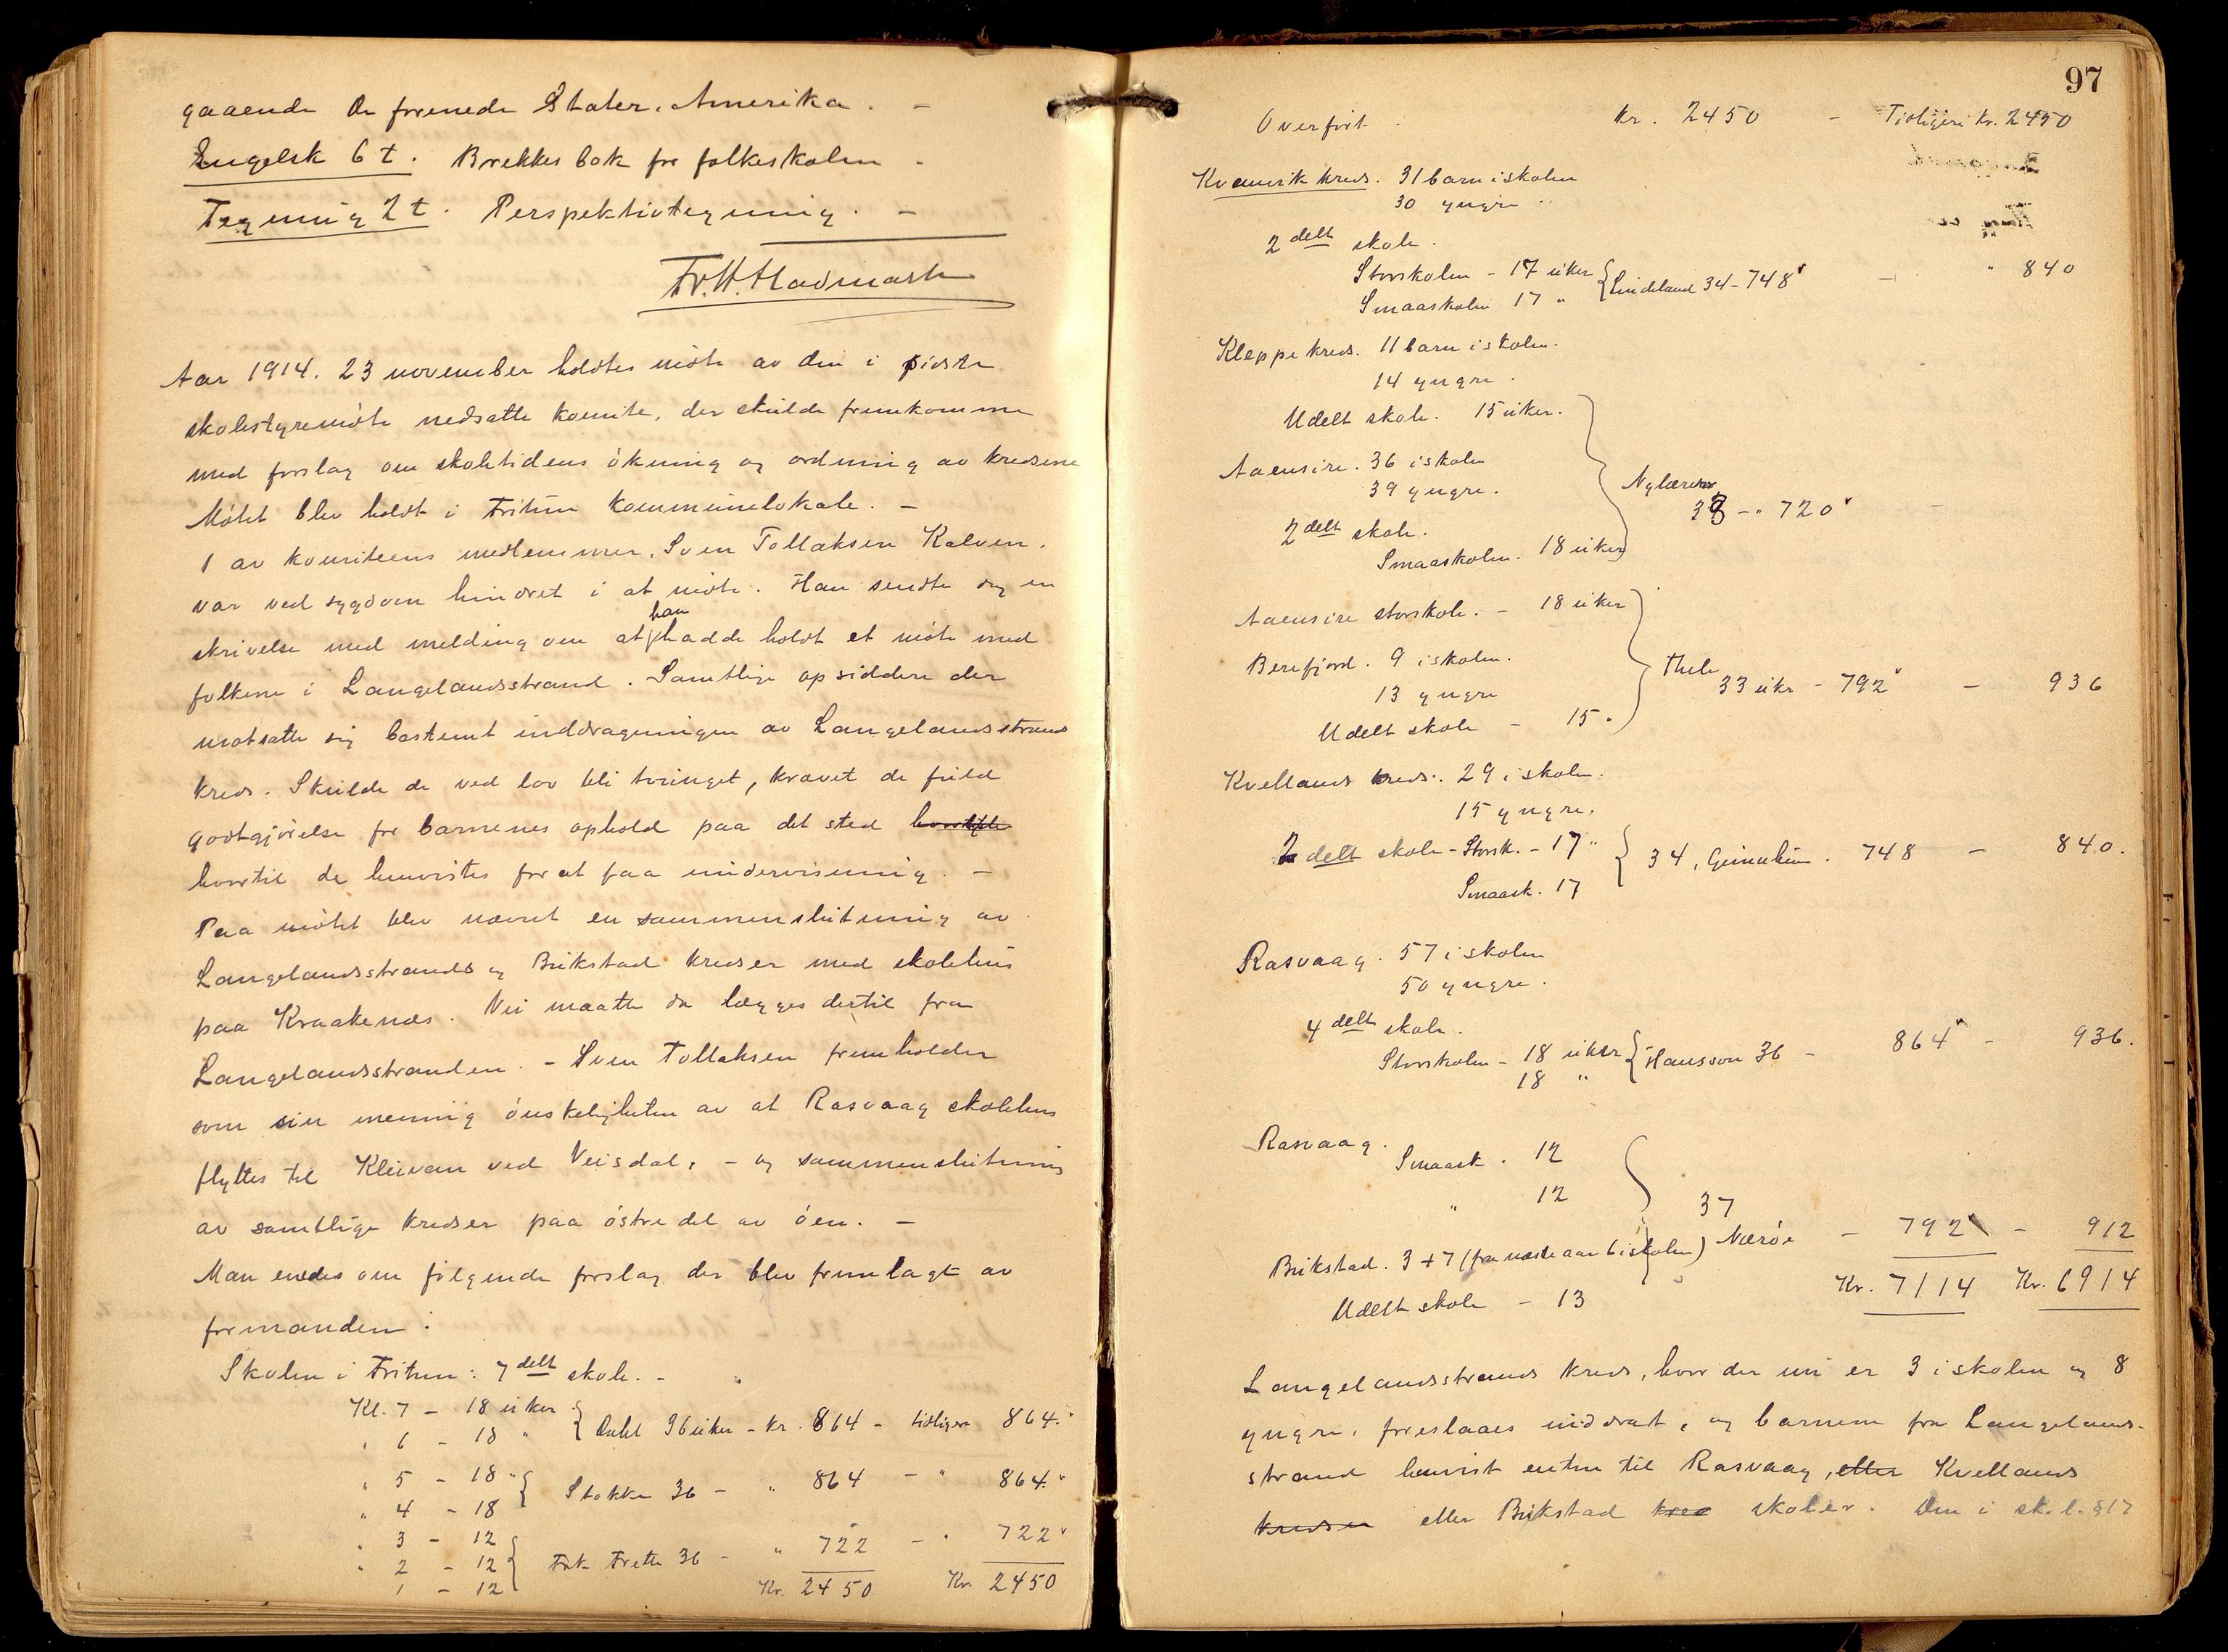 gaaende De forenede Stater, Amerika. –
Engelsk 6 t. Brekkes bok for folkeskolen –
Tegning 2 t. Perspektivtegning. –
Fr. H.
Aar 1914. 23 november holdtes møte av den i sidste
skolestyremøte nedsatte komite, der skulde fremkomme
med forslag om skoletidens økning og ordning av kredsene
Møtet blev holdt i Fritun kommunelokale. –
1 av komiteens medlemmer, Sven Tollaksen Kalven,
var ved sygdom hindret i at møte. Han sendte dog en
skrivelse med melding om at han hadde holdt et møte med
folkene i Langelandsstrand. Samtlige opsiddere der
motsatte sig bestemt inddragningen av Langelandsstrands
kreds. Skulde de ved lov bli tvinget, krævet de fuld
godtgjørelse for barnenes ophold paa det sted
hvortil de henvistes for at faa undervisning. –
Paa møtet blev nævnt en sammenslutning av
Langelandsstrands og Brikstad kredser med skolehus
paa Kraakenes. Vei maatte da lægges dertil fra
Langelandsstranden. – Sven Tollaksen fremholder
som sin mening ønskeligheten av at Rasvaag skolehus
flyttes til Kleivan ved Veisdal, – og sammenslutning
av samtlige kredser paa østre del av øen. –
Man enedes om følgende forslag der blev fremlagt av
formanden:
Skolen i Fritun: 7 delt skole. –
Kl. 7 – 18 uker
" 6 – 18 " } 36 uker – kr. 864 – tidligere 864.
" 5 – 18 "
" 4 – 18 } Stokke 36 – " 864 – " 864.
" 3 – 12
" 2 – 12 } Frk Frette 36 – " 722 – " 722
1 – 12 Kr. 2450 Kr. 2450
97
Overført kr. 2450 – Tidligere kr. 2450
Kvanvik kreds. 31 barn i skolen
30 yngre "
2 delt skole.
Storskolen – 17 uker { Lindeland 34 – 748 – " 840
Smaaskolen 17 "
Kleppe kreds. 11 barn i skolen.
14 yngre.
Udelt skole. 15 uker.
Aaensire. 36 i skolen
39 yngre.
Ny lærer
38 – " 720 –
2 delt skole.
Smaaskolen. 18 uker
Aaensire storskole. – 18 uker
Berefjord. 9 i skolen.
13 yngre
Thele 33 uker – 792 – 936
Udelt skole – 15 "
Kvellands kreds. 29 i skolen.
15 yngre.
2 delt skole – Storsk. – 17 " { 34, 748 – 840.
Smaask. 17
Rasvaag. 57 i skolen
50 yngre.
4 delt skole.
Storskolen – 18 uker { Hansson 36 – 864 – 936.
18 "
Rasvaag.
Smaask. 12
" 12
37
Brikstad. 3 + 7 (fra næste aar 6 i skolen) Nærøe – 792 – 912
Udelt skole – 13 Kr. 7114 Kr. 6914
Langelandsstrands kreds, hvor der nu er 3 i skolen og 8
yngre, foreslaaes inddrat, og barnene fra Langelands-
strand henvist enten til Rasvaag, eller Kvellands
kredser eller Brikstad kred skoler. Den i sk.l. §17